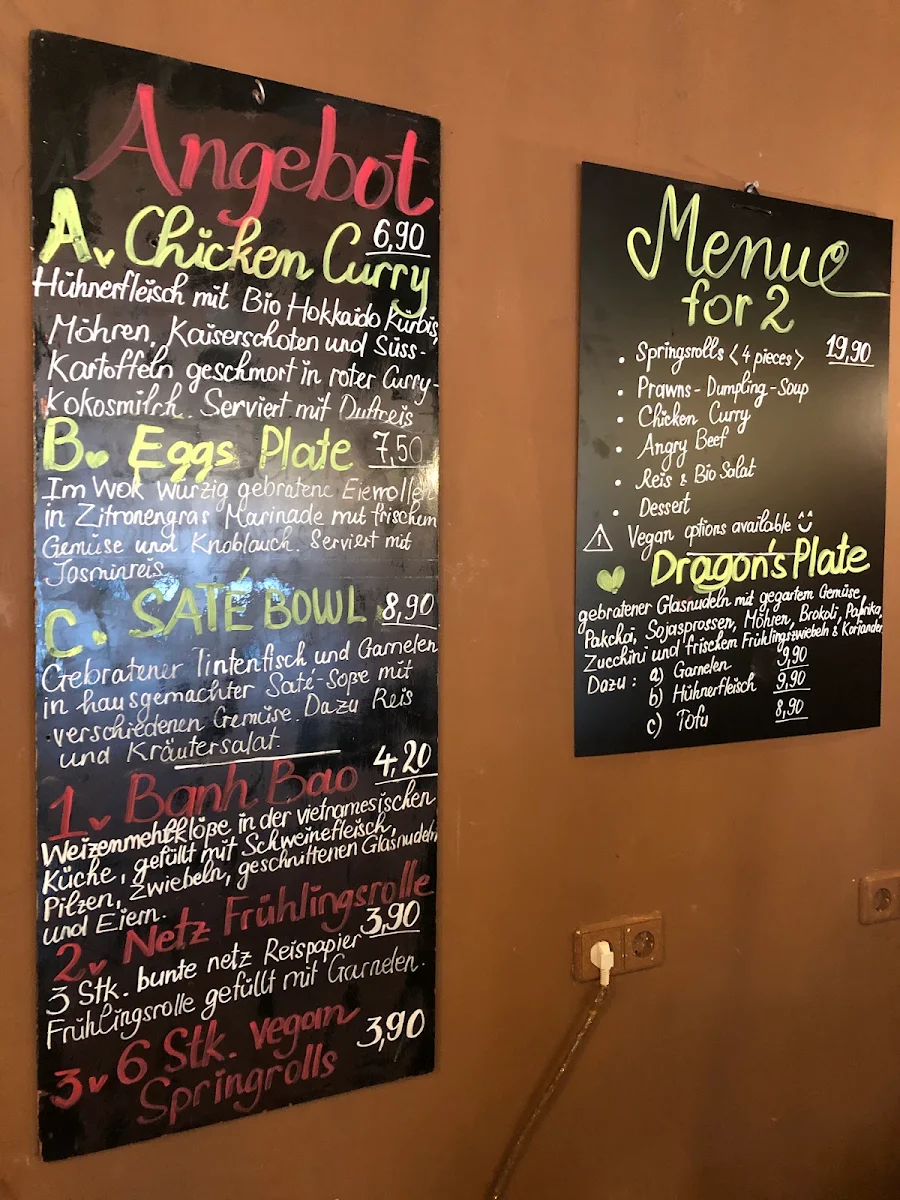 Angebot
A. Chicken Curry 6,90
Hühnerfleisch mit Bio Hokkaido Kürbis,
Möhren, Kaiserschoten und Süss-
Kartoffeln geschmort in roter Curry-
Kokosmilch. Serviert mit Duftreis
B. Eggs Plate 7,50
Im Wok würzig gebratene Eierrolle
in Zitronengras Marinade mit frischem
Gemüse und Knoblauch. Serviert mit
Jasminreis
C. SATÉ BOWL 8,90
Gebratener Tintenfisch und Garnelen
in hausgemachter Saté-Soße mit
verschiedenen Gemüse. Dazu Reis
und Kräutersalat.
1. Banh Bao 4,20
Weizenmehlklöße in der vietnamesischen
Küche, gefüllt mit Schweinefleisch,
Pilzen, Zwiebeln, geschnittenen Glasnudeln
und Eiern.
2. Netz Frühlingsrolle
3,90
3 Stk. bunte netz Reispapier
Frühlingsrolle gefüllt mit Garnelen.
3. 6 Stk. vegan 3,90
Springrolls
Menue
for 2
• Springsrolls <4 pieces> 19,90
• Prawns-Dumpling-Soup
• Chicken Curry
• Angry Beef
• Reis & Bio Salat
• Dessert
Vegan options available
Dragon's Plate
gebratener Glasnudeln mit gegartem Gemüse,
Pakchoi, Sojasprossen, Möhren, Brokoli, Paprika,
Zucchini und frischem Frühlingszwiebeln & Koriander
Dazu: a) Garnelen 9,90
b) Hühnerfleisch 9,90
c) Tofu 8,90